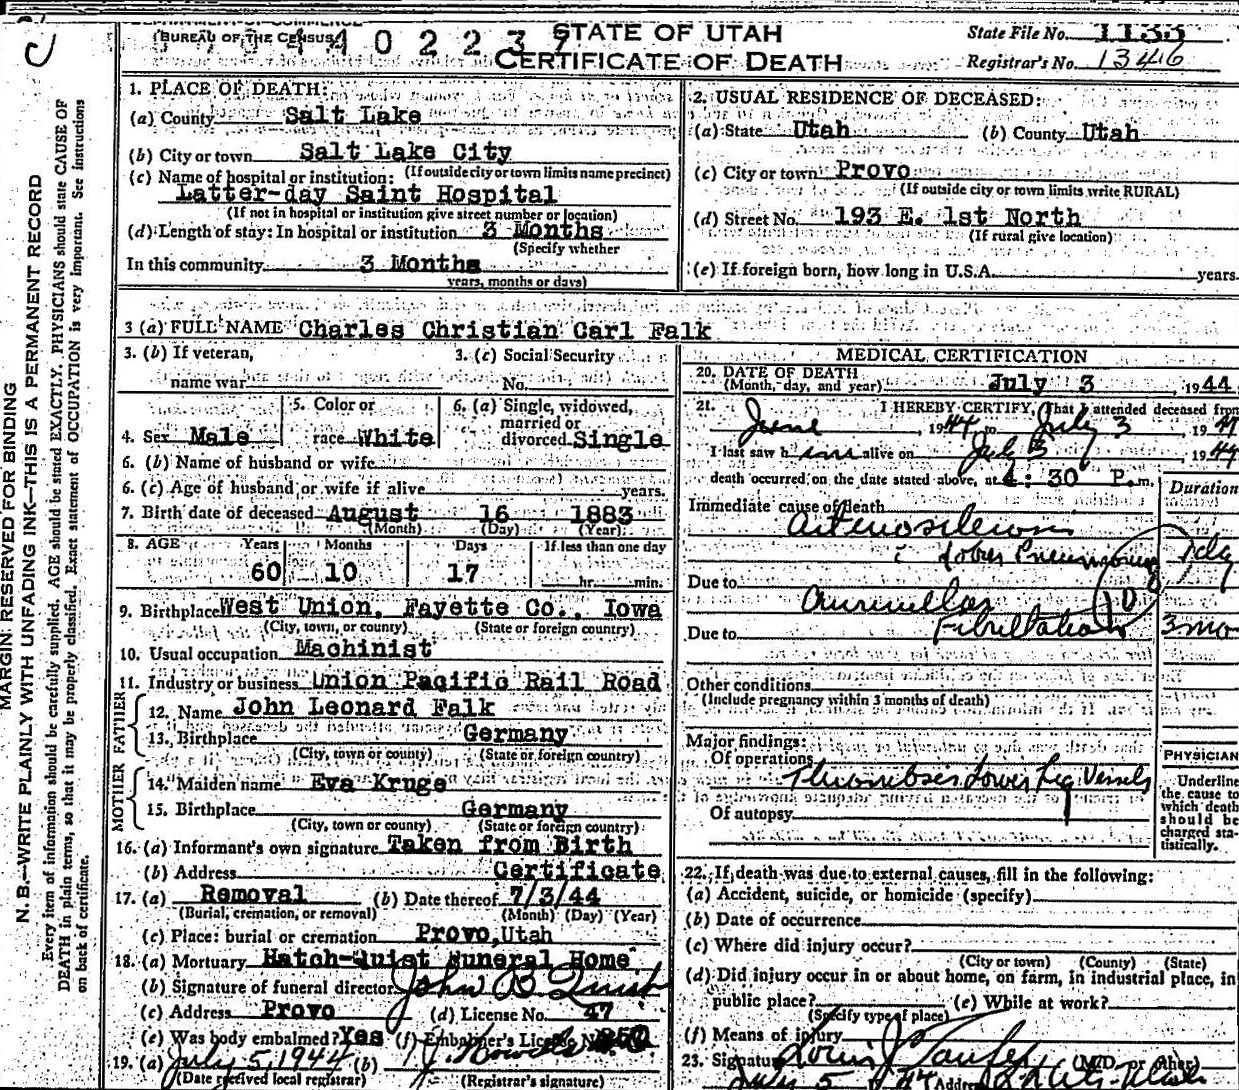 BUREAU OF THE CENSUS
STATE OF UTAH
CERTIFICATE OF DEATH
State File No. 1133
Registrar's No. 1346
MARGIN RESERVED FOR BINDING
N. B.—WRITE PLAINLY WITH UNFADING INK—THIS IS A PERMANENT RECORD
Every item of information should be carefully supplied. AGE should be stated EXACTLY. PHYSICIANS should state CAUSE OF
DEATH in plain terms, so that it may be properly classified. Exact statement of OCCUPATION is very important. See instructions
on back of certificate.
1. PLACE OF DEATH:
(a) County Salt Lake
(b) City or town Salt Lake City
(If outside city or town limits name precinct)
(c) Name of hospital or institution:
Latter-day Saint Hospital
(If not in hospital or institution give street number or location)
(d) Length of stay: In hospital or institution 3 Months
(Specify whether
In this community 3 Months
years, months or days)
2. USUAL RESIDENCE OF DECEASED:
(a) State Utah (b) County Utah
(c) City or town Provo
(If outside city or town limits write RURAL)
(d) Street No. 193 E. 1st North
(If rural give location)
(e) If foreign born, how long in U.S.A. years.
3 (a) FULL NAME Charles Christian Carl Falk
3. (b) If veteran,
name war
3. (c) Social Security
No.
4. Sex Male
5. Color or
race White
6. (a) Single, widowed,
married or
divorced Single
6. (b) Name of husband or wife
6. (c) Age of husband or wife if alive years.
7. Birth date of deceased August 16 1883
(Month) (Day) (Year)
8. AGE Years Months Days If less than one day
60 10 17 hr. min.
9. Birthplace West Union, Fayette Co., Iowa
(City, town, or county) (State or foreign country)
10. Usual occupation Machinist
11. Industry or business Union Pacific Rail Road
FATHER
12. Name John Leonard Falk
13. Birthplace Germany
(City, town or county) (State or foreign country)
MOTHER
14. Maiden name Eva Kruge
15. Birthplace Germany
(City, town or county) (State or foreign country)
16. (a) Informant's own signature Taken from Birth
(b) Address Certificate
17. (a) Removal (b) Date thereof 7/3/44
(Burial, cremation, or removal) (Month) (Day) (Year)
(c) Place: burial or cremation Provo, Utah
18. (a) Mortuary Hatch-Quist Funeral Home
(b) Signature of funeral director John B Quist
(c) Address Provo (d) License No. 47
(e) Was body embalmed? Yes (f) Embalmer's License No.
19. (a) July 5, 1944 (b)
(Date received local registrar) (Registrar's signature)
MEDICAL CERTIFICATION
20. DATE OF DEATH
(Month, day, and year) July 3, 1944
21. I HEREBY CERTIFY, That I attended deceased from
June, 1944 to July 3, 1944
I last saw him alive on July 3, 1944
death occurred on the date stated above, at :30 P.m.
Duration
Immediate cause of death
Arteriosclerosis
Lobar Pneumonia
Due to
Auricular
Due to Fibrillation 3 mo
Other conditions
(Include pregnancy within 3 months of death)
Major findings:
Of operations Thrombosis Lower Leg Vessels
Of autopsy
PHYSICIAN
Underline
the cause to
which death
should be
charged sta-
tistically.
22. If death was due to external causes, fill in the following:
(a) Accident, suicide, or homicide (specify)
(b) Date of occurrence
(c) Where did injury occur?
(City or town) (County) (State)
(d) Did injury occur in or about home, on farm, in industrial place, in
public place? (e) While at work?
(Specify type of place)
(f) Means of injury
23. Signature (M.D. or other)
July 5 Address